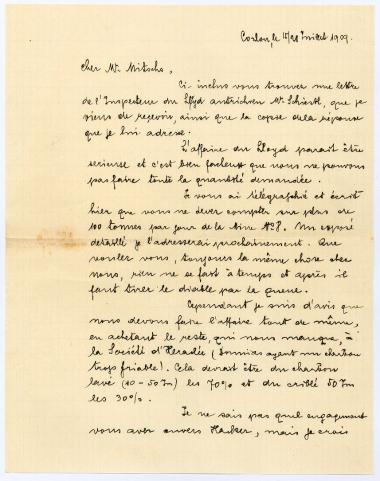 Coslou, le 15/28 Juillet 1909.
Cher Mr. Mitscho,
Ci-inclus vous trouver une lettre
de l'Inspecteur du Lloyd autrichien Mr. que je
viens de recevoir, ainsi que la copie de la réponse
que je lui adresse.
L'affaire du Lloyd parait être
serieuse et c'est bien facheux que nous ne pouvons
pas faire toute la quantité demandée.
Je vous ai télégraphié et écrit
hier que vous ne devez compter sur plus de
100 tonnes par jour de la Mine No 8. Un exposé
detaillé je l'adresserai prochainement. Que
voulez vous, toujours la même chose chez
nous, rien ne se fait à temps et après il
faut tirer le diable par la queue.
Cependant je suis d'avis que
nous devons faire l'affaire tout de même,
en achetant le reste, qui nous manque, à
la Société d'Heraclée ( ayant un charbon
trop friable). Cela devrait être du charbon
lavé (10-50 m) les 70% et du criblé 50 m
les 30%.
Je ne sais pas quel engagement
vous avez envers Hacker, mais je crois